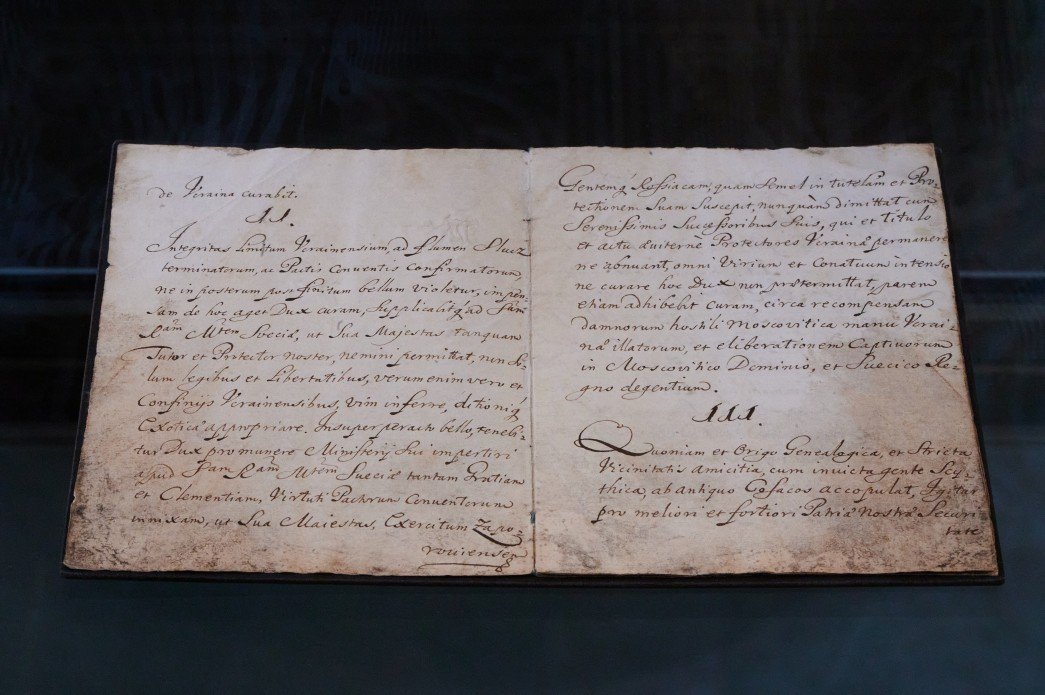 de Vcraina curabit.
II.
Integritas limitum Vcrainensium, ad flumen Slucz
terminatorum, ac Pactis Conventis Confirmatorum
ne in posterum post finitum bellum violetur, impen-
sam de hoc aget Dux curam, supplicabitq́ ad Sam
Ram Mtem Sueciæ, ut Sua Majestas tanquam
Tutor et Protector noster, nemini permittat, non so-
lum legibus et Libertatibus, verum enim vero et
Confinijs Vcrainensibus, vim inferre, ditioniq́
Exoticæ appropriare. Insuper peracto bello, tenebi-
tur Dux pro munere Ministerij Sui impertiri
apud Sam Ram Mtem Sueciæ tantam Gratiam
et Clementiam, Virtuti Pactorum Conventorum
innixam, ut Sua Maiestas, Exercitum Zapo-
rouiensem
Gentemq́ Rossiacam, quam semel in tutelam et Pro-
tectionem Suam Suscepit, nunquam dimittat cum
Serenissimis Successoribus Suis, qui et titulo
et actu æuiterne Protectores Vcrainæ permanere
ne abnuant, omni Virium et Conatuum intensio
ne curare hoc Dux non prætermittat, parem
etiam adhibebit curam, circa recompensam
damnorum hostili Moscovitica manu Vcrai-
næ illatorum, et eliberationem Captiuorum
in Moscovitico Dominio, et Suecico Re-
gno degentium.
III.
Quoniam et Origo Genealogica, et Stricta
Vicinitatis amicitia, cum invicta gente Scy-
thica, ab antiquo Cosacos accopulat, Igitur
pro meliori et fortiori Patriæ Nostræ Securi
tate